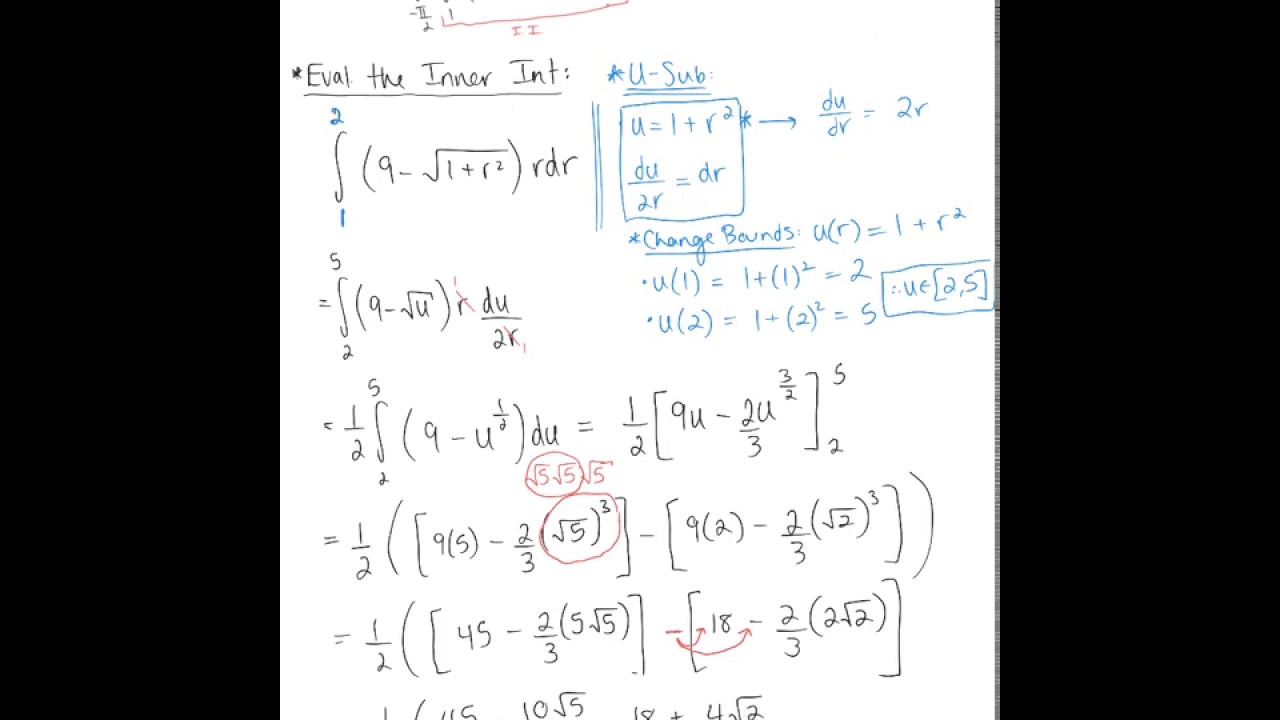 -π/2 1
I.I
*Eval the Inner Int:
∫₁² (9-√(1+r²)) rdr
= ∫₂⁵ (9-√u) r du/2r
= 1/2 ∫₂⁵ (9-u^(1/2)) du = 1/2 [9u - 2u^(3/2)/3]₂⁵
√5√5√5
= 1/2 ([9(5) - 2/3(√5)³] - [9(2) - 2/3(√2)³])
= 1/2 ([45 - 2/3(5√5)] - [18 - 2/3(2√2)]
1 (45 10√5 18 + 4√2
*U-Sub:
u=1+r² * → du/dr = 2r
du/2r = dr
*Change Bounds: u(r) = 1+r²
·u(1) = 1+(1)² = 2
·u(2) = 1+(2)² = 5
∴u∈[2,5]